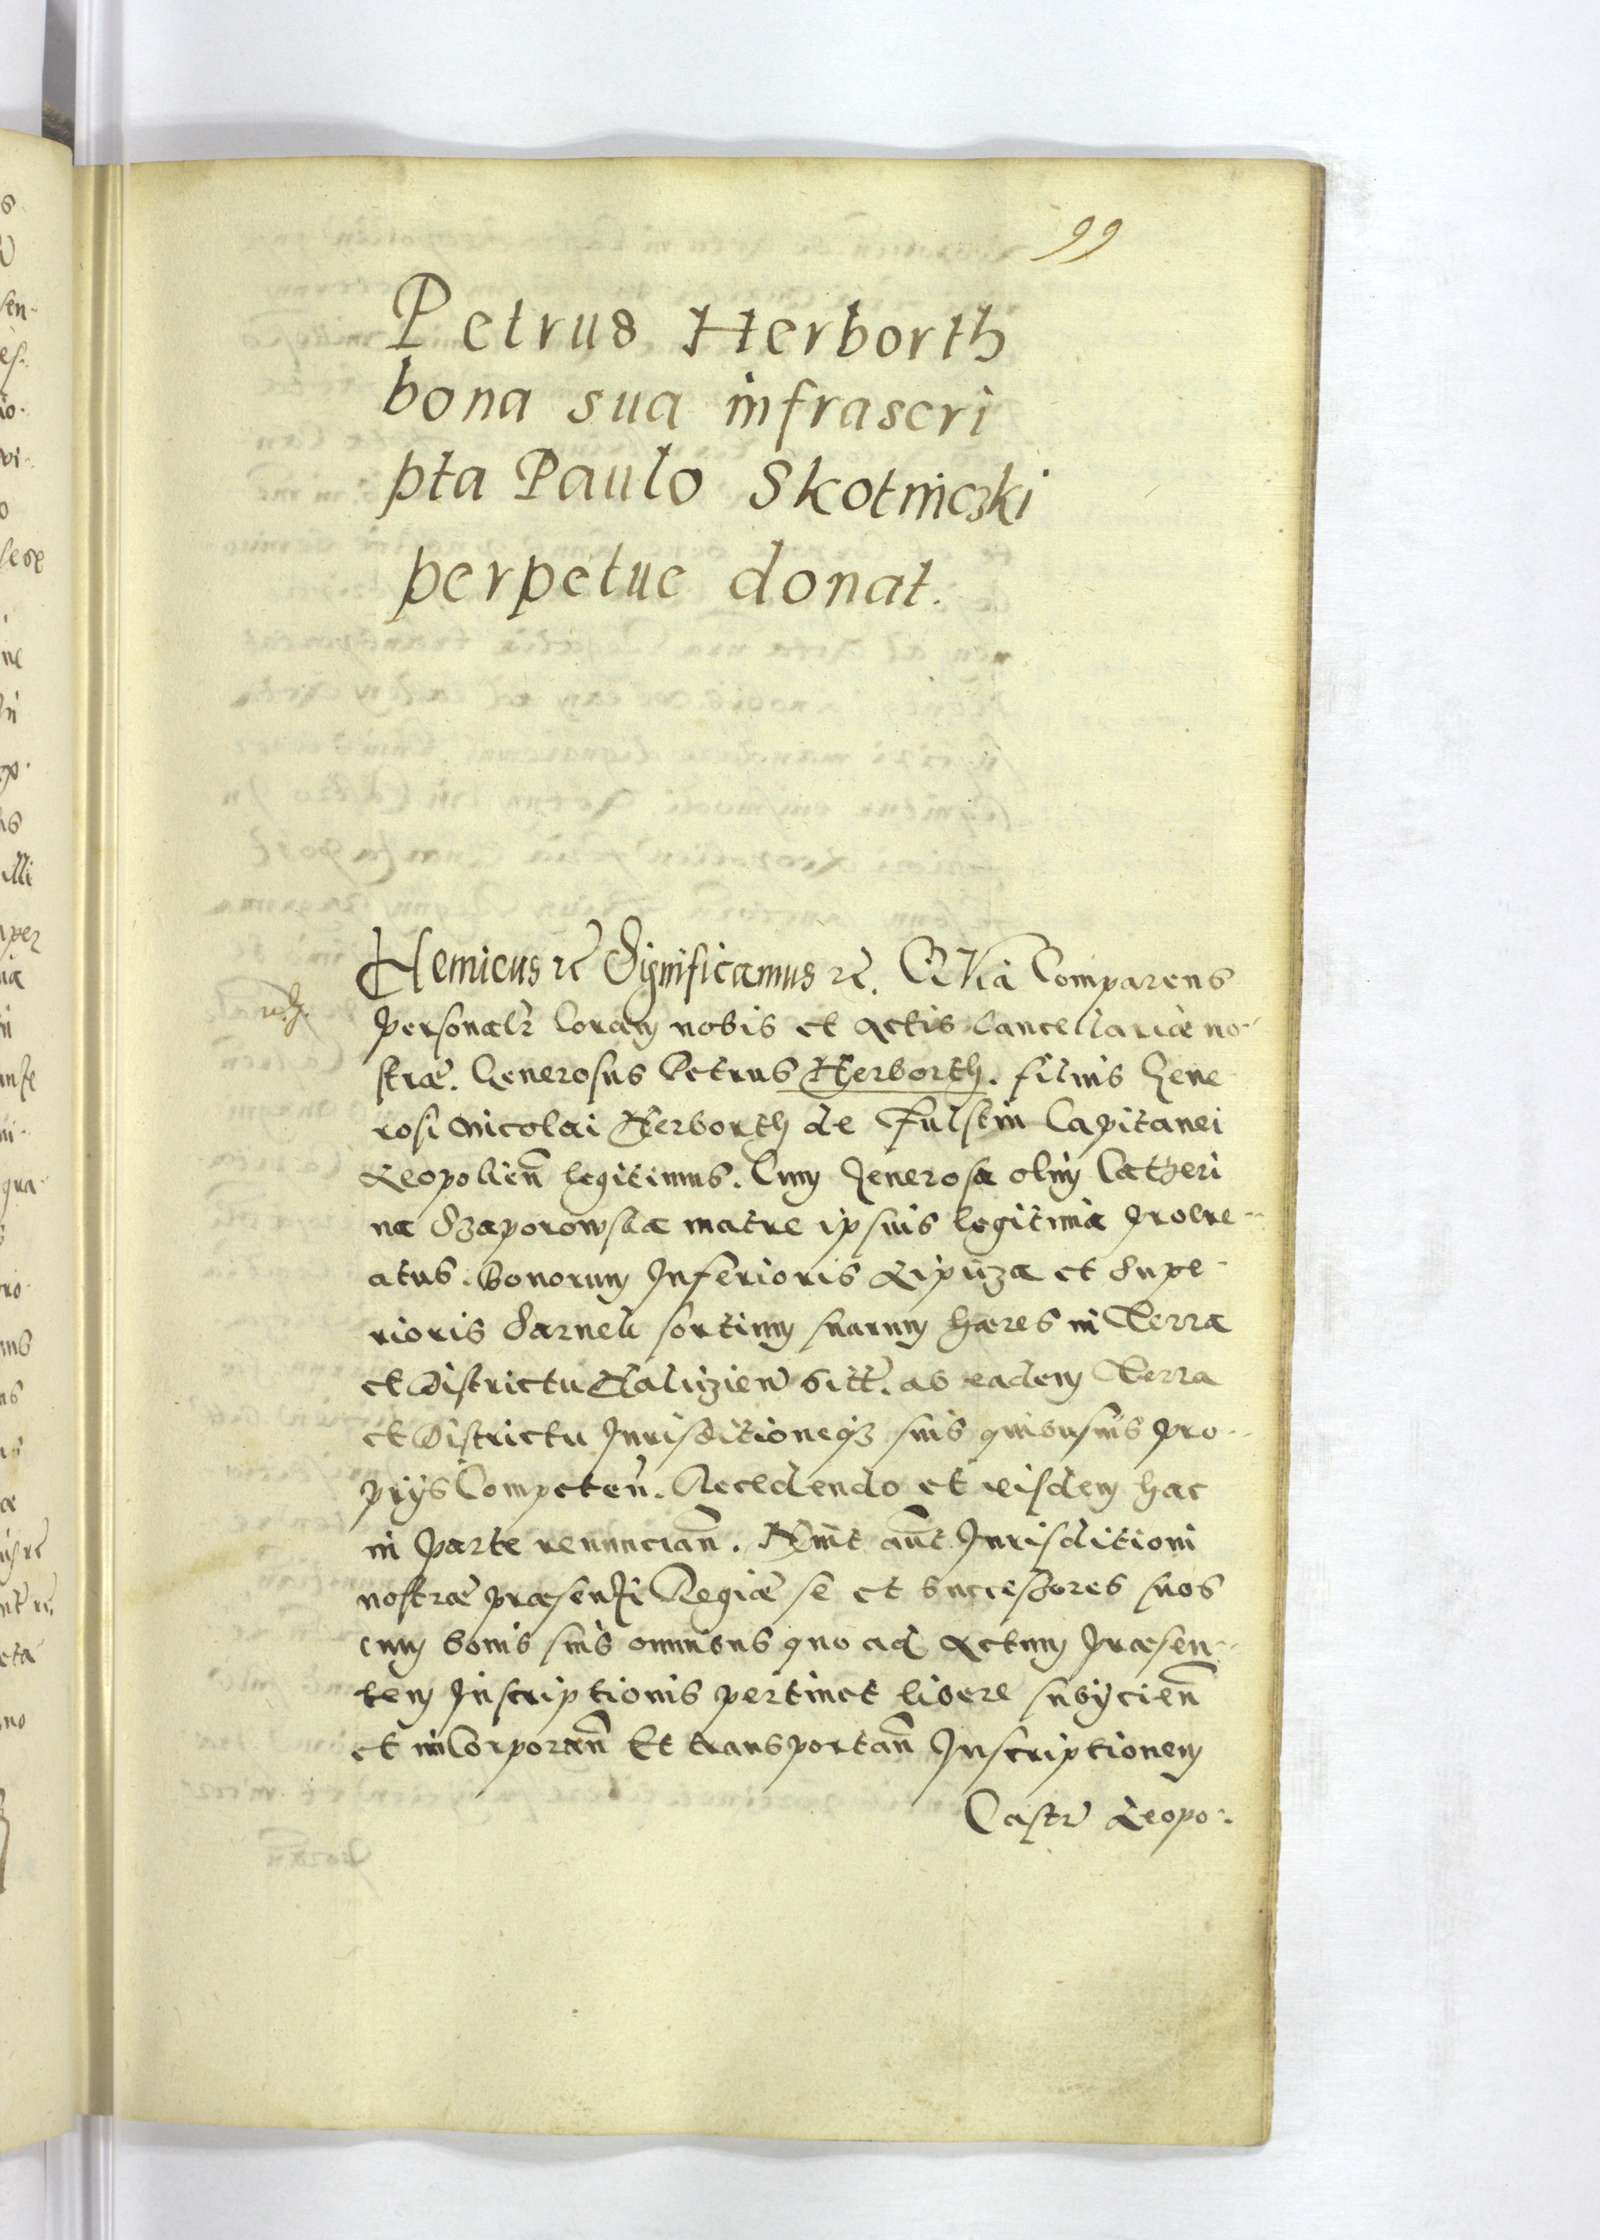 99
Petrus Herborth
bona sua infrascri
pta Paulo Skotniczki
perpetue donat.
Henricus rc Significamus rc. Quia Comparens
personalr Coram nobis et Actis Cancellariæ no-
stræ. Generosus Petrus Herborth. filius Gene
rosi Nicolai Herborth de Fulstin Capitanei
Leopolien legitimus. Cum Generosa olim Catheri
na Dzaporowska matre ipsius legitima procre-
atus. Bonorum Inferioris Lipicza et Supe-
rioris Sarneli sortium suarum hæres in Terra
et Districtu Halicien sitt. ab eadem Terra
et Districtu Jurisditioneqz suis quibusuis pro-
prys Competen. Recedendo et eisdem hac
in parte renuncian. Jurisditioni
nostræ præsenti Regiæ se et successores suos
cum bonis suis omnibus quo ad Actum præsen-
tem Inscriptionis pertinet libere subycien
et inCorporan Et transportan Inscriptionem
Castr Leopo-